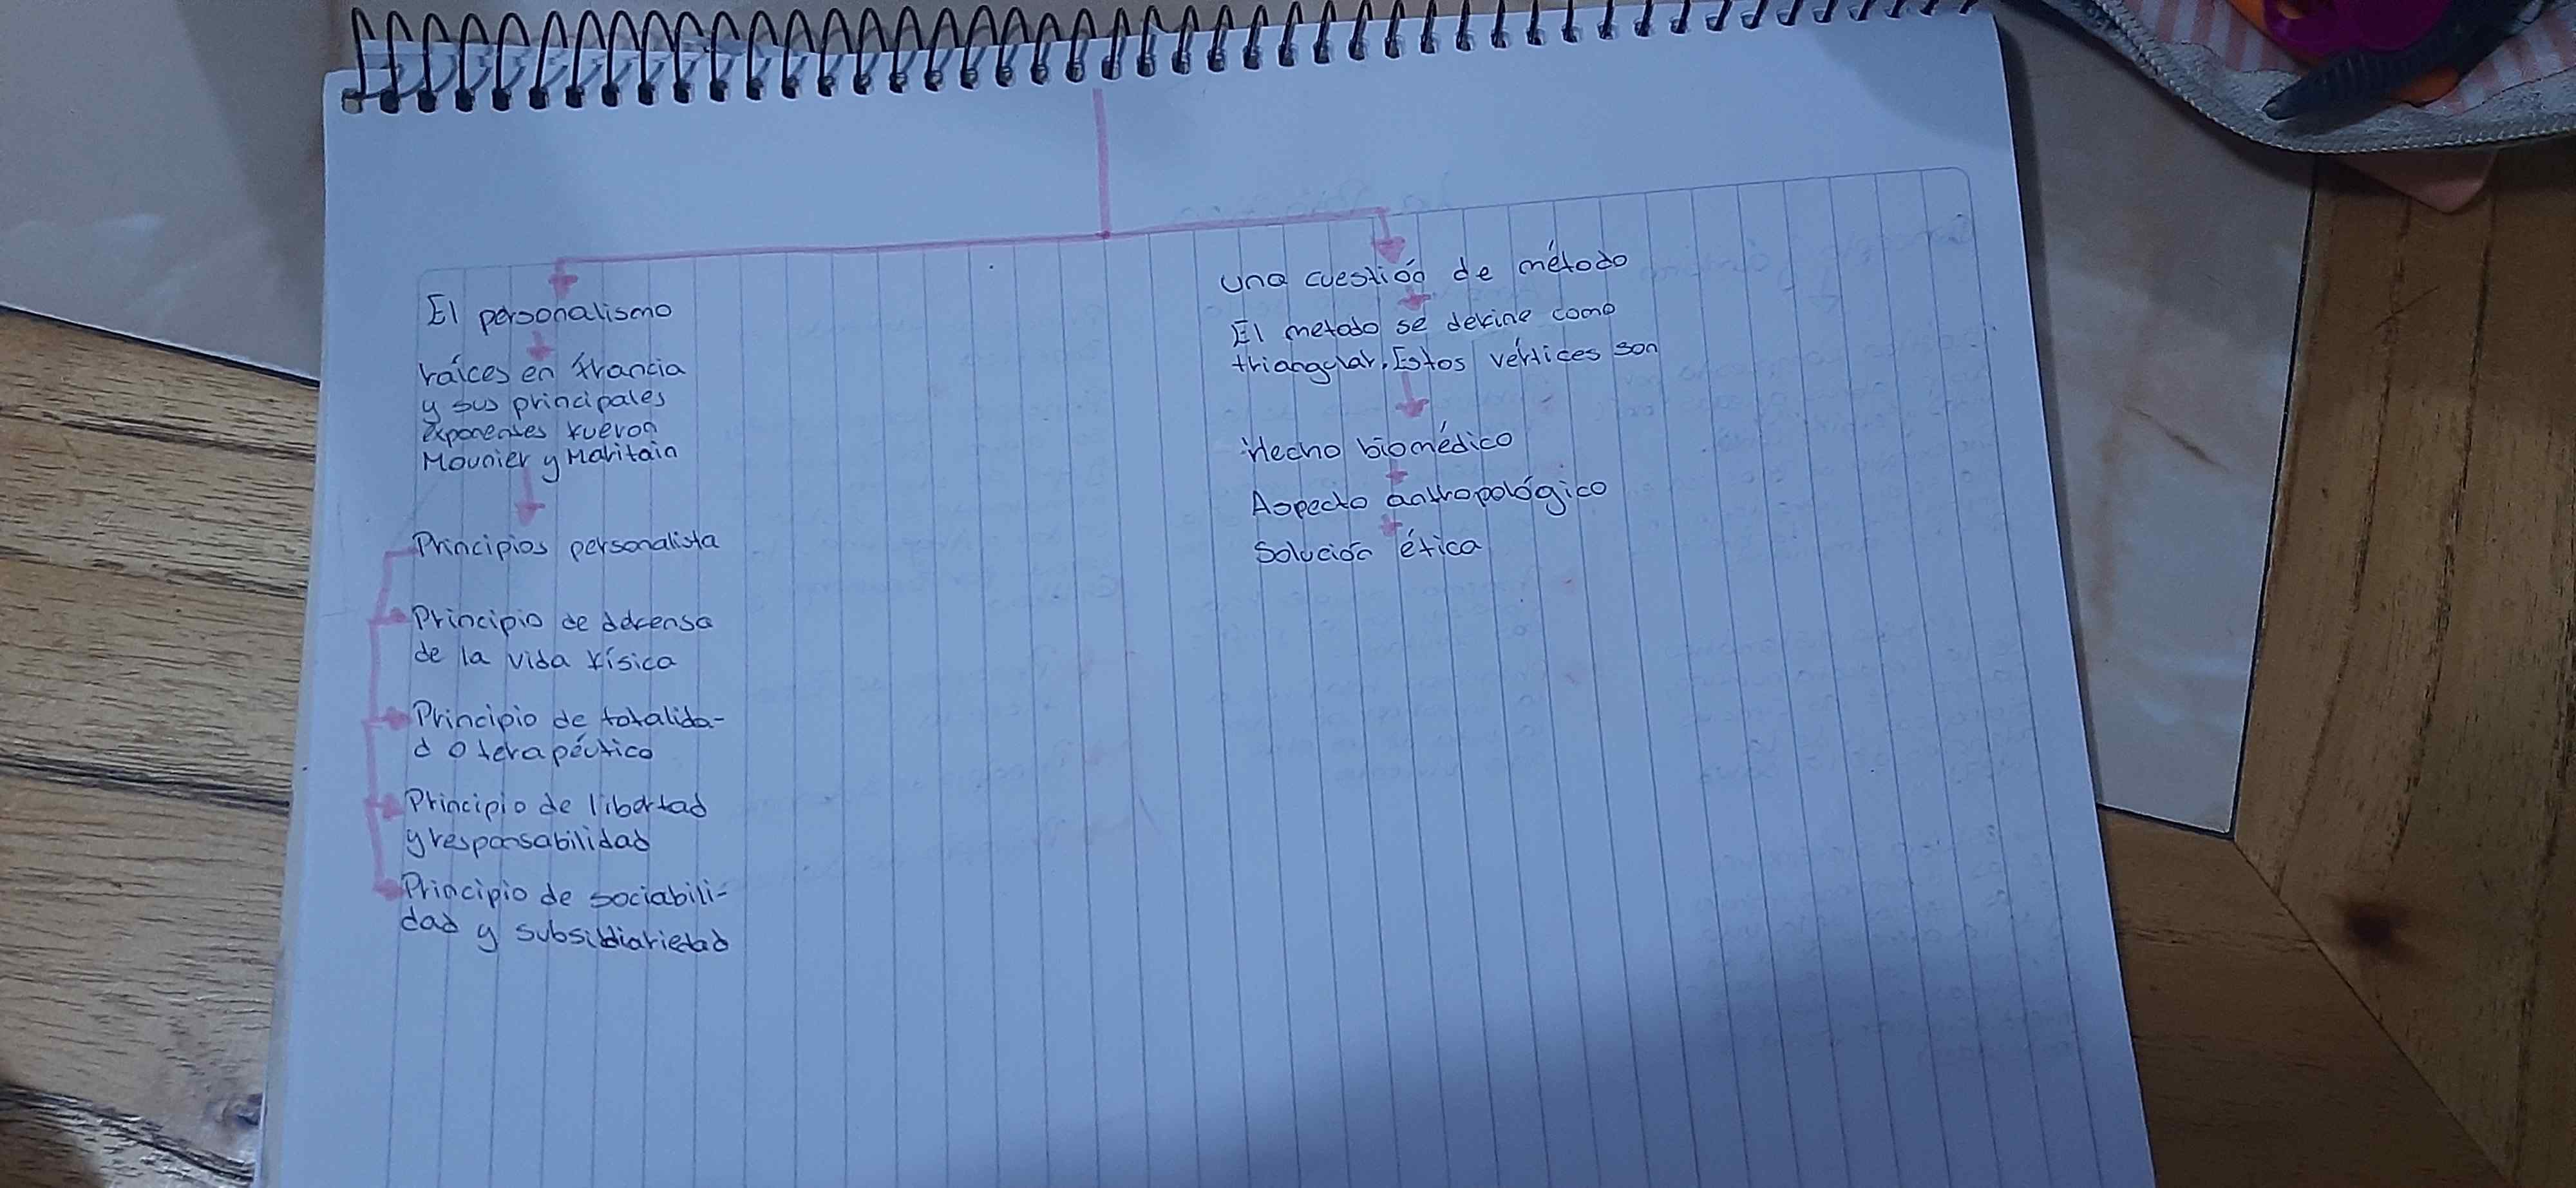 El personalismo
raíces en francia
y sus principales
exponentes fueron
Mounier y Maritain
Principios personalista
Principio de defensa
de la vida física
Principio de totalida-
d o terapéutico
Principio de libertad
y responsabilidad
Principio de sociabili-
dad y subsidiariedad
una cuestión de método
El metodo se define como
triangular. Estos vértices son
Hecho biomédico
Aspecto antropológico
Solución ética